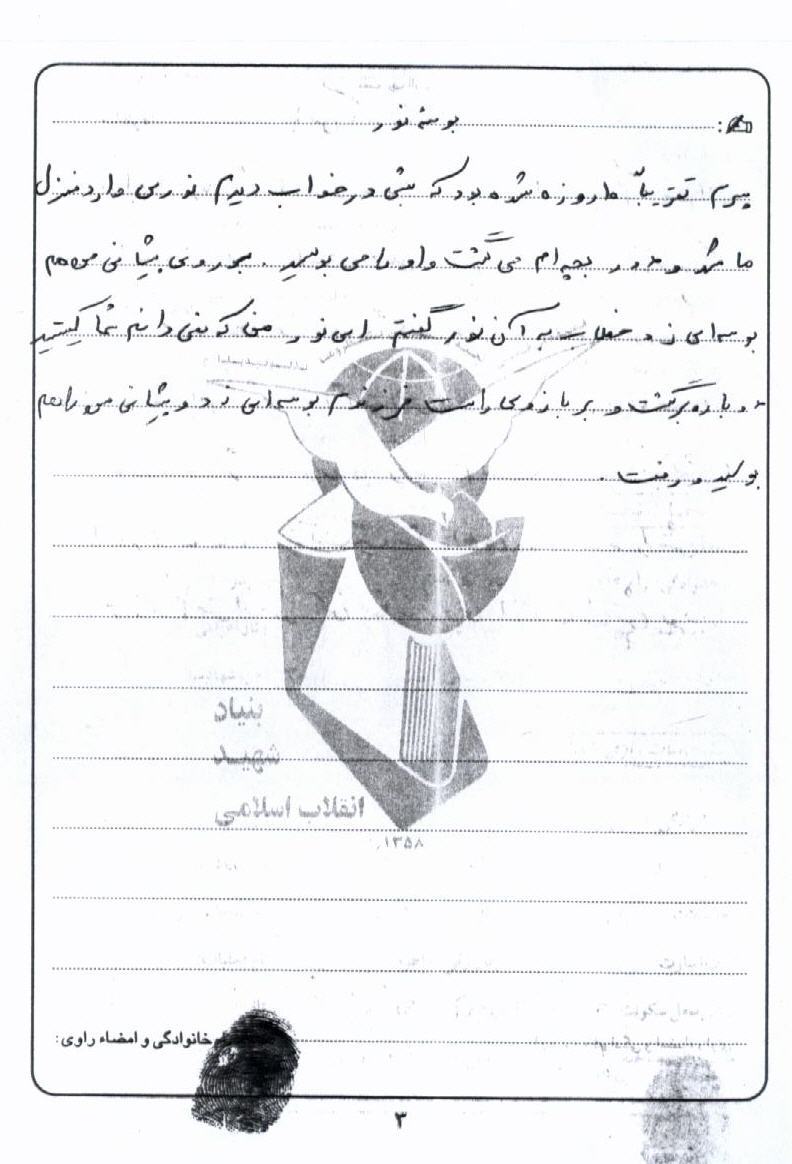 بوسهٔ نور
پسرم تقریباً ۱۵ روزه شده بود که شبی در خواب دیدم نوری وارد منزل
ما شد و دور بچه‌ام می‌گشت و او را می بوسید. بر روی پیشانی من هم
بوسه‌ای زد خطاب به آن نور گفتم ای نور من که نمی دانم شما کیستید
دوباره برگشت و بر بازوی راست فرزندم بوسه‌ای زد و پیشانی من را هم
بوسید و رفت.
بنیاد
شهید
انقلاب اسلامی
۱۳۵۸
خانوادگی و امضاء راوی:
۳